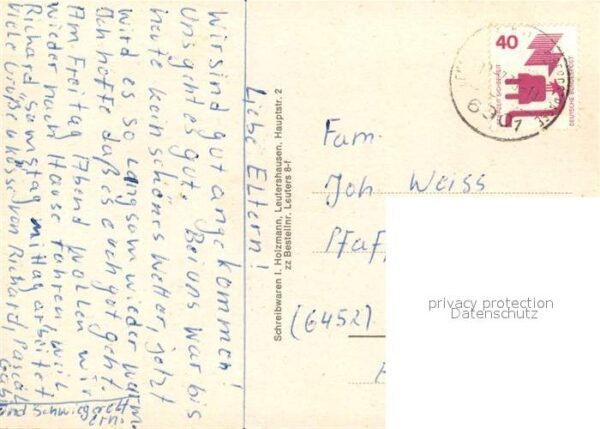 Liebe Eltern!
Wir sind gut angekommen!
Uns geht es gut. Bei uns war bis
heute kein schönes Wetter, jetzt
wird es so langsam wieder warm.
Ich hoffe daß es euch gut geht.
Am Freitag Abend wollen wir
wieder nach Hause fahren, weil
Richard Samstag mittag arbeitet
Viele Grüße u Küsse von Richard, Pascal
Gabi
und Schwiegerelt
ern.
Schreibwaren I. Holzmann, Leutershausen, Hauptstr. 2
zz Bestellnr. Leuters 8-f
40
DEUTSCHE BUNDESPOST
6901
Fam.
Joh Weiss
Pfaf
(6452)
privacy protection
Datenschutz